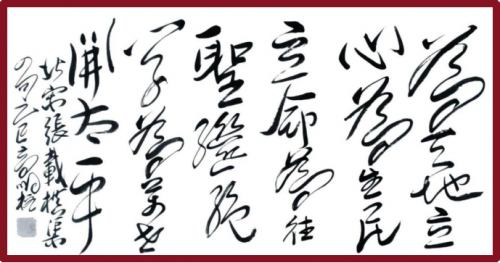 為天地立
心為生民
立命為往
聖繼絕
學為萬世
開太平
北宋張載橫渠
四句乙巳